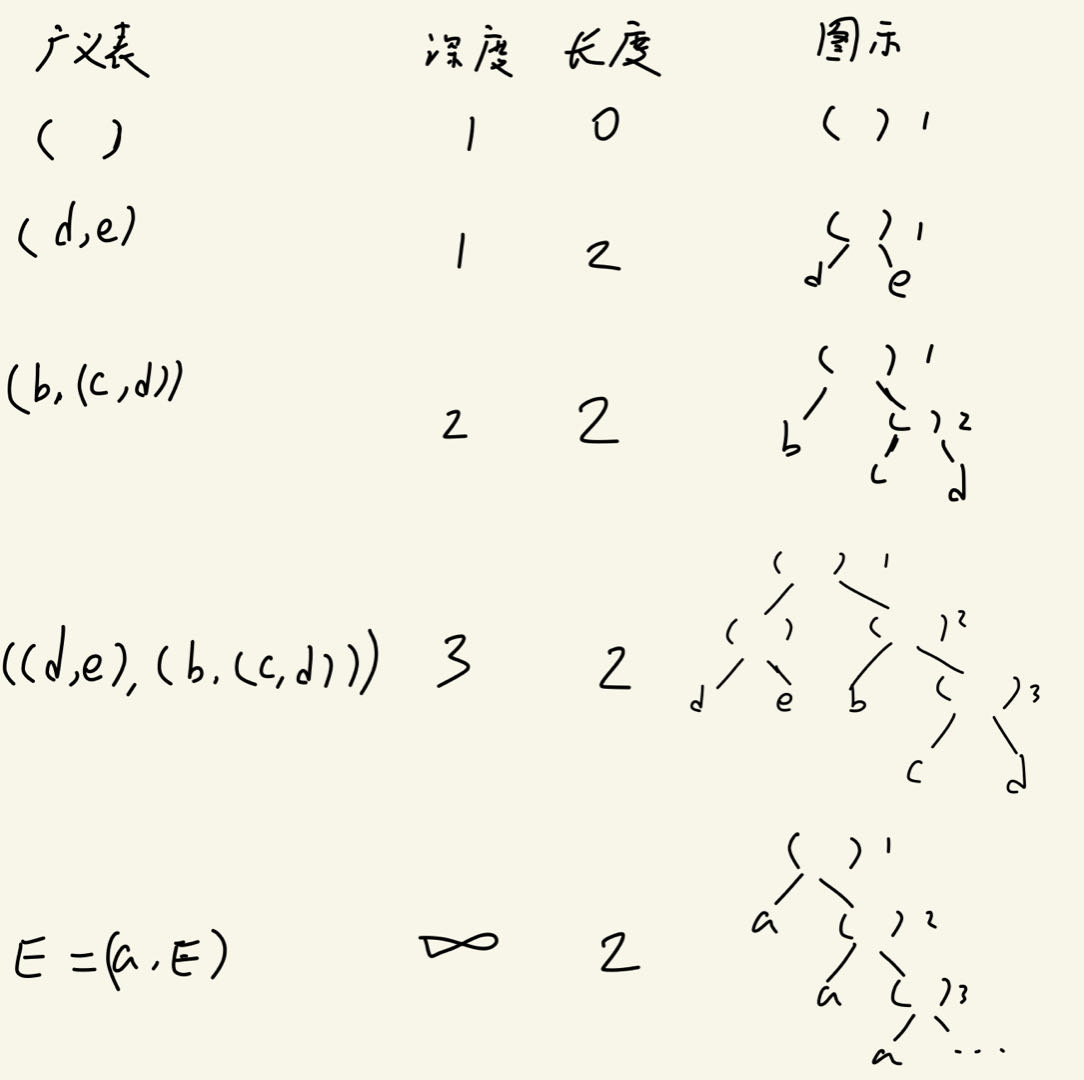 广义表 深度 长度 图示
( ) 1 0 ( ) 1
(d,e) 1 2 ( ) 1
d e
(b,(c,d)) 2 2 ( ) 1
b ( ) 2
c d
((d,e),(b,(c,d))) 3 2 ( ) 1
( ) ( ) 2
d e b ( ) 3
c d
E=(a,E) ∞ 2 ( ) 1
a ( ) 2
a ( ) 3
a ...